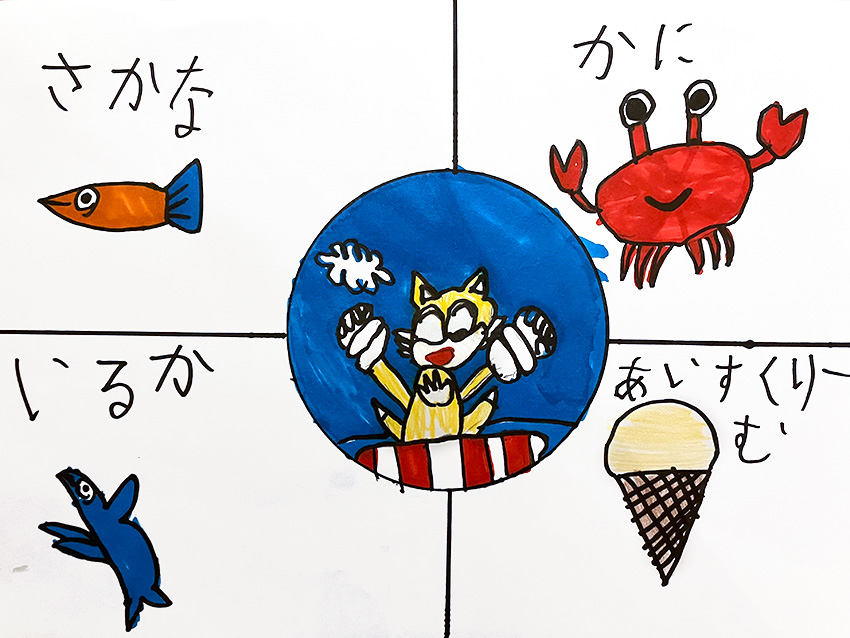 さかな
かに
いるか
あいすくりー
む